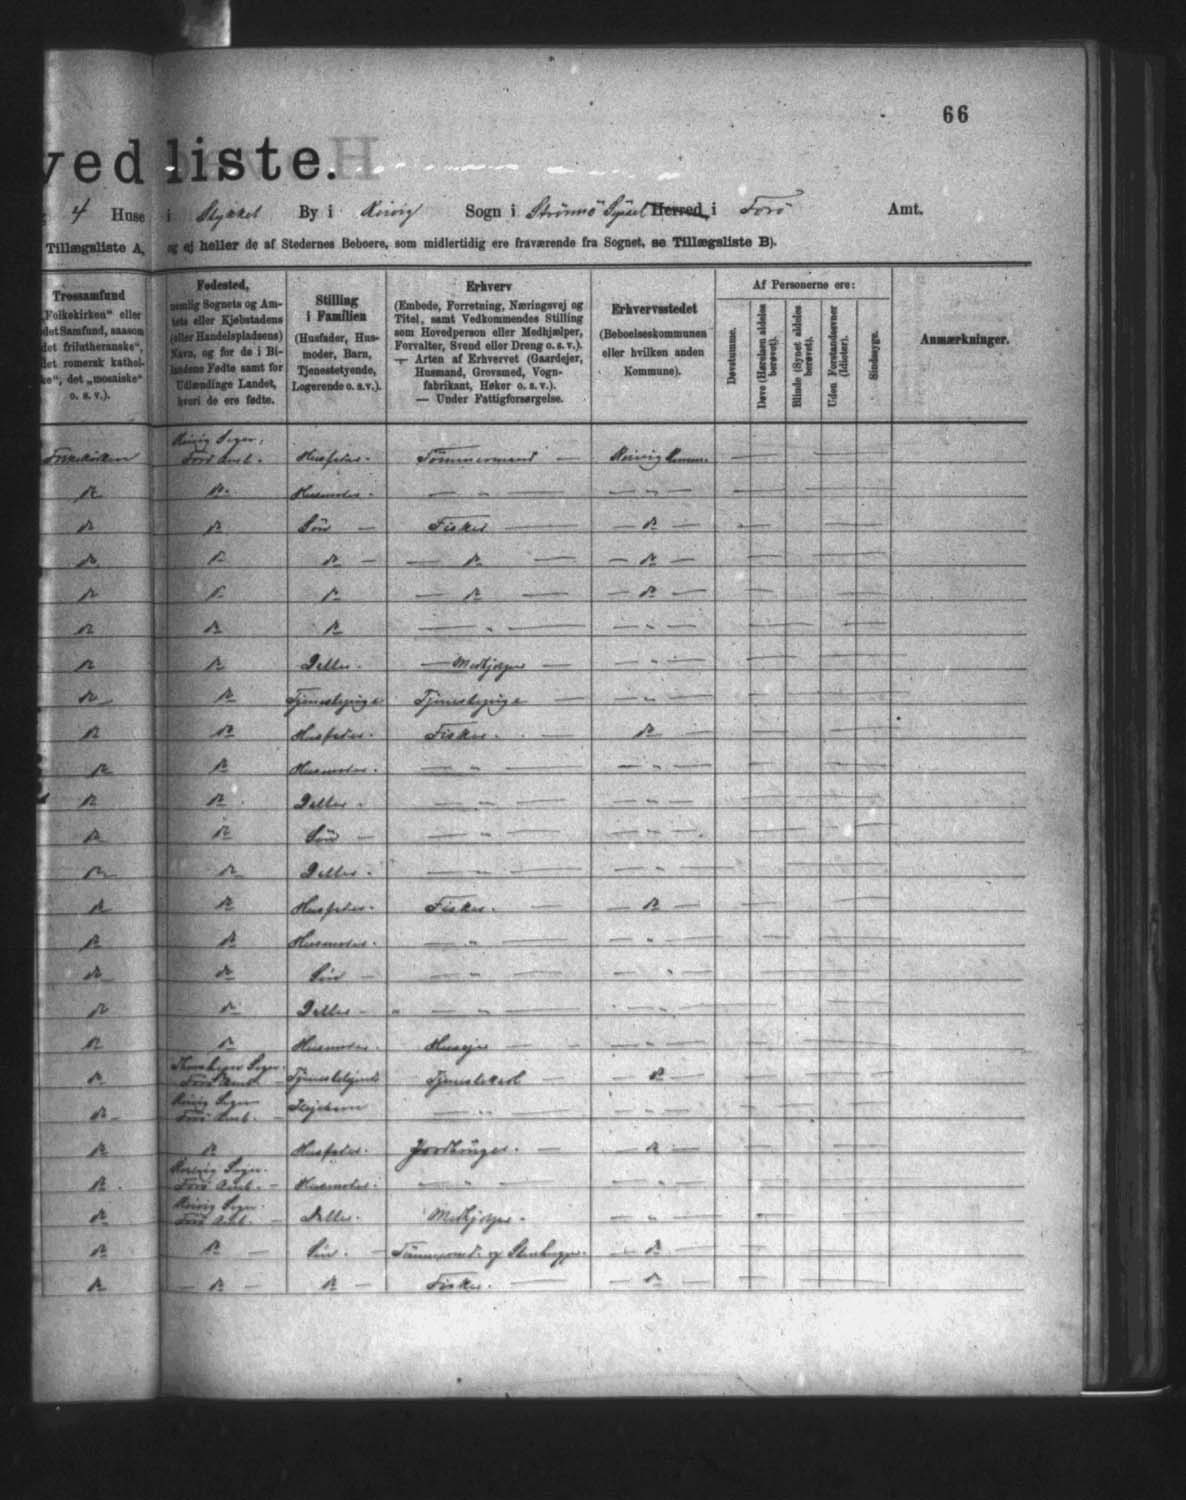 66
ved liste.
4 Huse i Stykket By i Kvivig Sogn i Strömö Sysel Herred i Forö Amt.
Tillægsliste A, og ej heller de af Stedernes Beboere, som midlertidig ere fraværende fra Sognet, se Tillægsliste B).
Trossamfund
„Folkekirken“ eller
det Samfund, saasom
det frilutheranske“,
det romersk kathol-
ke“, det „mosaiske“
o. s. v.).
Fødested,
nemlig Sognets og Am-
tets eller Kjøbstadens
(eller Handelspladsens)
Navn, og for de i Bi-
landene Fødte samt for
Udlændinge Landet,
hvori de ere fødte.
Stilling
i Familien
(Husfader, Hus-
moder, Barn,
Tjenestetyende,
Logerende o. s.v.).
Erhverv
(Embede, Forretning, Næringsvej og
Titel, samt Vedkommendes Stilling
som Hovedperson eller Medhjælper,
Forvalter, Svend eller Dreng o. s. v.).
— Arten af Erhvervet (Gaardejer,
Husmand, Grovsmed, Vogn-
fabrikant, Høker o. s. v.).
— Under Fattigforsørgelse.
Erhvervsstedet
(Beboelseskommunen
eller hvilken anden
Kommune).
Af Personerne ere:
Døvstumme.
Døve (Hørelsen aldeles
berøvet).
Blinde (Synet aldeles
berøvet).
Uden Forstandsevner
(Idioter).
Sindssyge.
Anmærkninger.
Kvivig Sogn,
Folkekirken Forö Amt. Husfader. Tömmermand — Kvivig Komm. — —
do do. Husmoder. — „ — — „ — — —
do do Sön — Fisker — — do — — —
do do do — — do — — do — — —
do do do — do — — do — — —
do do do — „ — — „ — — —
do do Datter. — Medhjelper — — „ — — —
do do Tjenestepige Tjenestepige — — „ — — —
do do Husfader. Fisker. — do — — —
do do Husmoder. — „ — — „ — — —
do do Datter. — „ — — „ — — —
do do Sön — — „ — — „ — — —
do do Datter. — „ — — „ — — —
do do Husfader. Fisker. — — do — — —
do do Husmoder. — „ — — „ — — —
do do Sön — — „ — — „ — — —
do do Datter — — „ — — „ — — —
do do Husmoder. Husejer — — „ — — —
Sogn.
do Forö Amt — Tjenestetyende Tjenestekarl — do — — —
Kvivig Sogn
do Forö Amt. — Plejebarn — „ — — „ — — —
do do Husfader. Jordbruger. — do — — —
Sogn.
do. Forö Amt. — Husmoder. — „ — — „ — — —
Kvivig Sogn.
do Forö Amt. — Datter. Medhjelper. — „ — — —
do do — Sön. — Tömmermd. og — do — — —
do — do — do — Fisker. — — do — — —